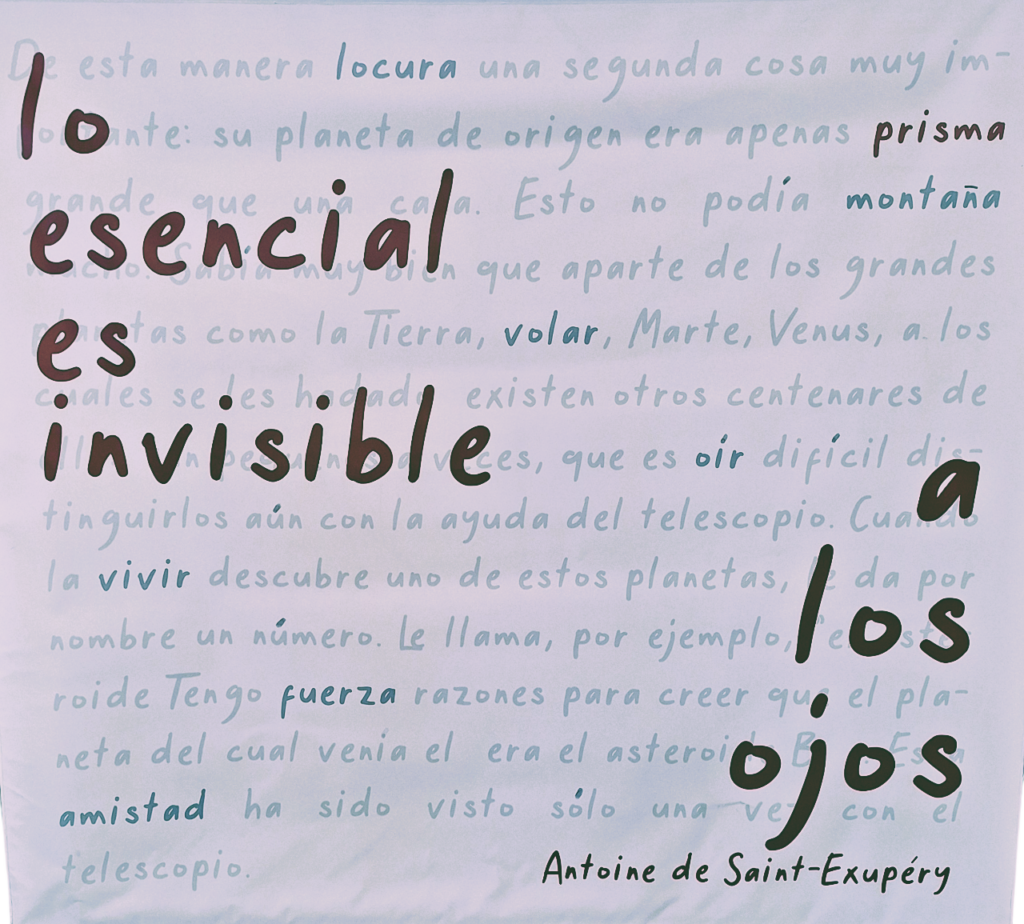 lo
esencial
es
invisible
a
los
ojos
Antoine de Saint-Exupéry
esta manera locura una segunda cosa muy im-
su planeta de origen era apenas prisma
grande que una Esto no podía montaña
Sabía muy bien que aparte de los grandes
como la Tierra, volar, Marte, Venus, a los
cuales se les existen otros centenares de
que es oír difícil dis-
tinguirlos aún con la ayuda del telescopio.
la vivir descubre uno de estos planetas, da por
nombre un número. Le llama, por ejemplo,
roide Tengo fuerza razones para creer que el pla-
neta del cual venia el era el
amistad ha sido visto sólo una con el
telescopio.